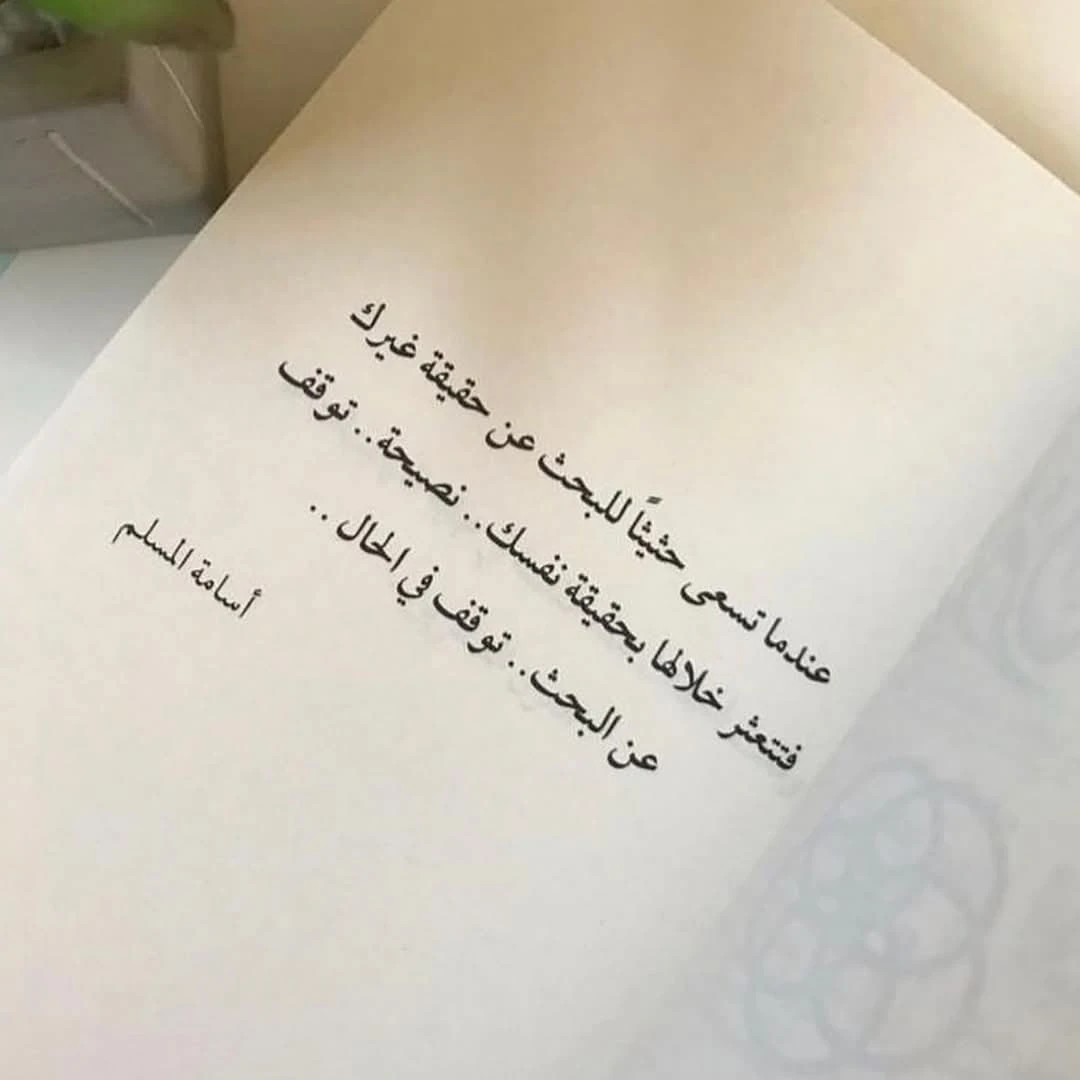 عندما تسعى حثيثاً للبحث عن حقيقة غيرك
فتتعثر خلالها بحقيقة نفسك.. نصيحة.. توقف
عن البحث.. توقف في الحال ..
أسامة المسلم